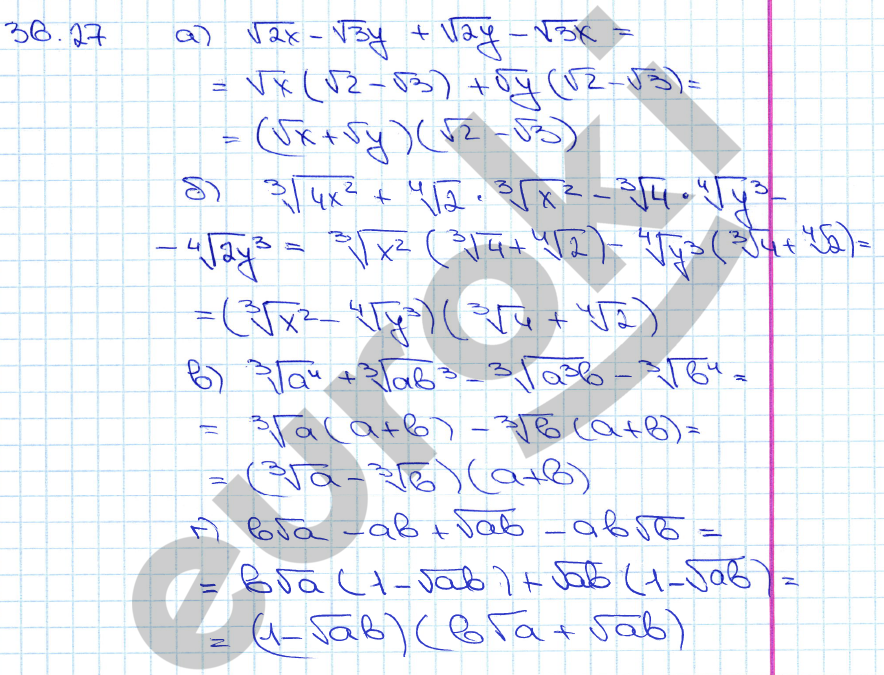 36.27 а) √2x - √3y + √2y - √3x =
= √x(√2 - √3) + √y(√2 - √3) =
= (√x + √y)(√2 - √3)
б) ∛4x² + ∜2 · ∛x² - ∛4 · ∜y³ -
- ∜2y³ = ∛x² (∛4 + ∜2) - ∜y³ (∛4 + ∜2) =
= (∛x² - ∜y³)(∛4 + ∜2)
в) ∛a⁴ + ∛ab³ - ∛a³b - ∛b⁴ =
= ∛a(a+b) - ∛b(a+b) =
= (∛a - ∛b)(a+b)
г) b√a - ab + √ab - ab√b =
= b√a(1 - √ab) + √ab(1 - √ab) =
= (1 - √ab)(b√a + √ab)
euroki